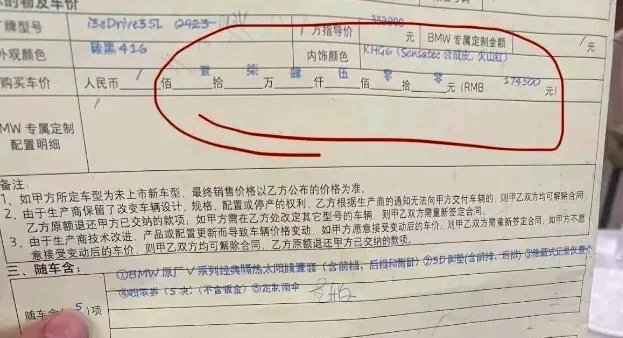 的名称及车价
牌型号 i3eDrive35L 0423 厂方指导价 353900 BMW 专属定制金额 / 元
外观颜色 碳黑416 内饰颜色 KHG6 (Sensatec 合成皮,火山红) / 元
购买车价 人民币 / 佰 壹 拾 柒 万 肆 仟 伍 佰 零 拾 零 元 (RMB 174500 元)
MW 专属定制 /
配置明细
备注:
1、如甲方所定车型为未上市新车型,最终销售价格以乙方公布的价格为准.
2、由于生产商保留了改变车辆设计、规格、配置或停产的权利,乙方根据生产商的通知无法向甲方交付车辆的,则甲乙双方均可解除合同,
乙方原额退还甲方已交纳的款项;如甲方需在乙方处改定其它型号的车辆,则甲乙双方需重新签定合同.
3、由于生产商技术改进、产品或配置更新而导致车辆价格变动,如甲方愿意接受变动后的车价,则甲乙双方需重新签定合同,如甲方不愿
意接受变动后的车价,则甲乙双方均可解除合同,乙方原额退还甲方已交纳的款项.
三、随车含:
随车含( 5 )项 ①BMW原厂V系列经典隔热太阳膜壹套(含前档、后档和侧窗) ②3D脚垫(含前排、后排)
(5次)(不含钣金) ⑤定制雨伞